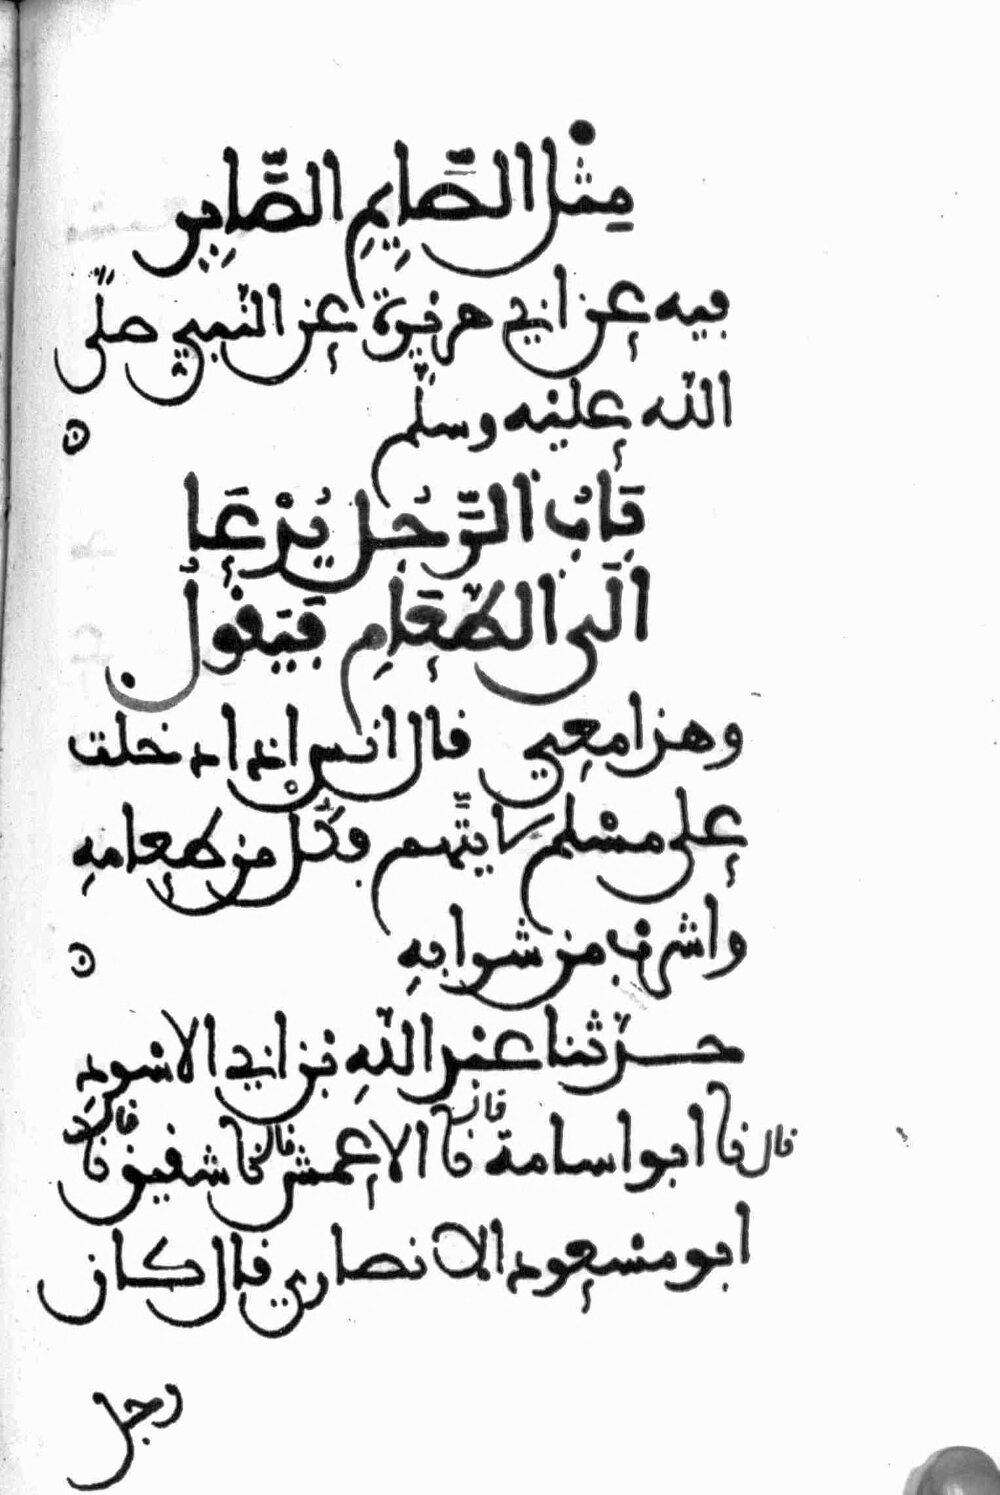 مِثْلُ الصَّايِمِ الصَّابِر
فيه عن ابي هريرة عن النبي صلى
الله عليه وسلم
بَابُ الرَّجُلِ يُدْعَا
الَى الطَّعَامِ فَيَقُولُ
وهذا معي قال انس اذا دخلت
على مسلم لا يتَّهم فكُل من طعامه
واشرب من شرابه
حدثنا عبد الله بن ابي الاسود
قال نا ابو اسامة قال نا الاعمش قال نا شقيق قال نا
ابو مسعود الانصاري قال كان
رجل